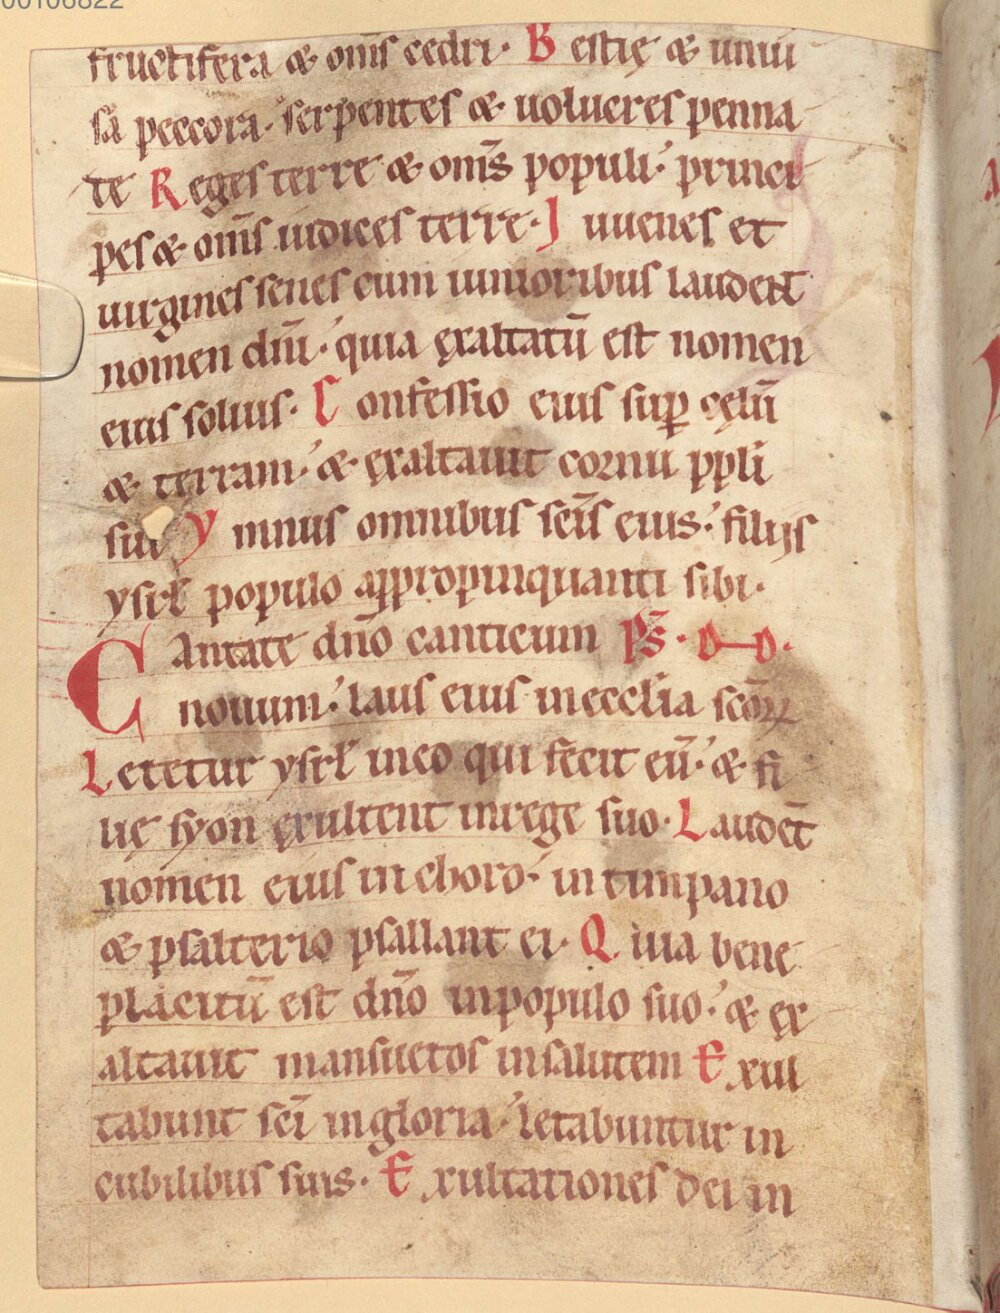 00106822
fructifera & om̄s cedri. Bestię & uniu
sā peccora. serpentes & uolucres penna
te Reges terre & om̄s populi. princi
pes & om̄s iudices terre. Iuuenes et
uirgines senes cum iunioribus laudent
nomen dn̄i. quia exaltatū est nomen
eius solius. Confessio eius sup cęlū
& terram. & exaltauit cornu ppli
sui Ymnus omnibus sc̄is eius. filijs
ysrł populo appropinquanti sibi.
Cantate dn̄o canticum Ps̄.
nouum. laus eius in eccl̄ia sc̄oꝝ
Letetur ysrł in eo qui fecit eū. & fi
lię syon exultent in rege suo. Laudēt
nomen eius in choro. in timpano
& psalterio psallant ei. Quia bene
placitū est dn̄o in populo suo. & ex
altauit mansuetos in salutem Exul
tabunt sc̄i in gloria. letabuntur in
cubilibus suis. Exultationes dei in